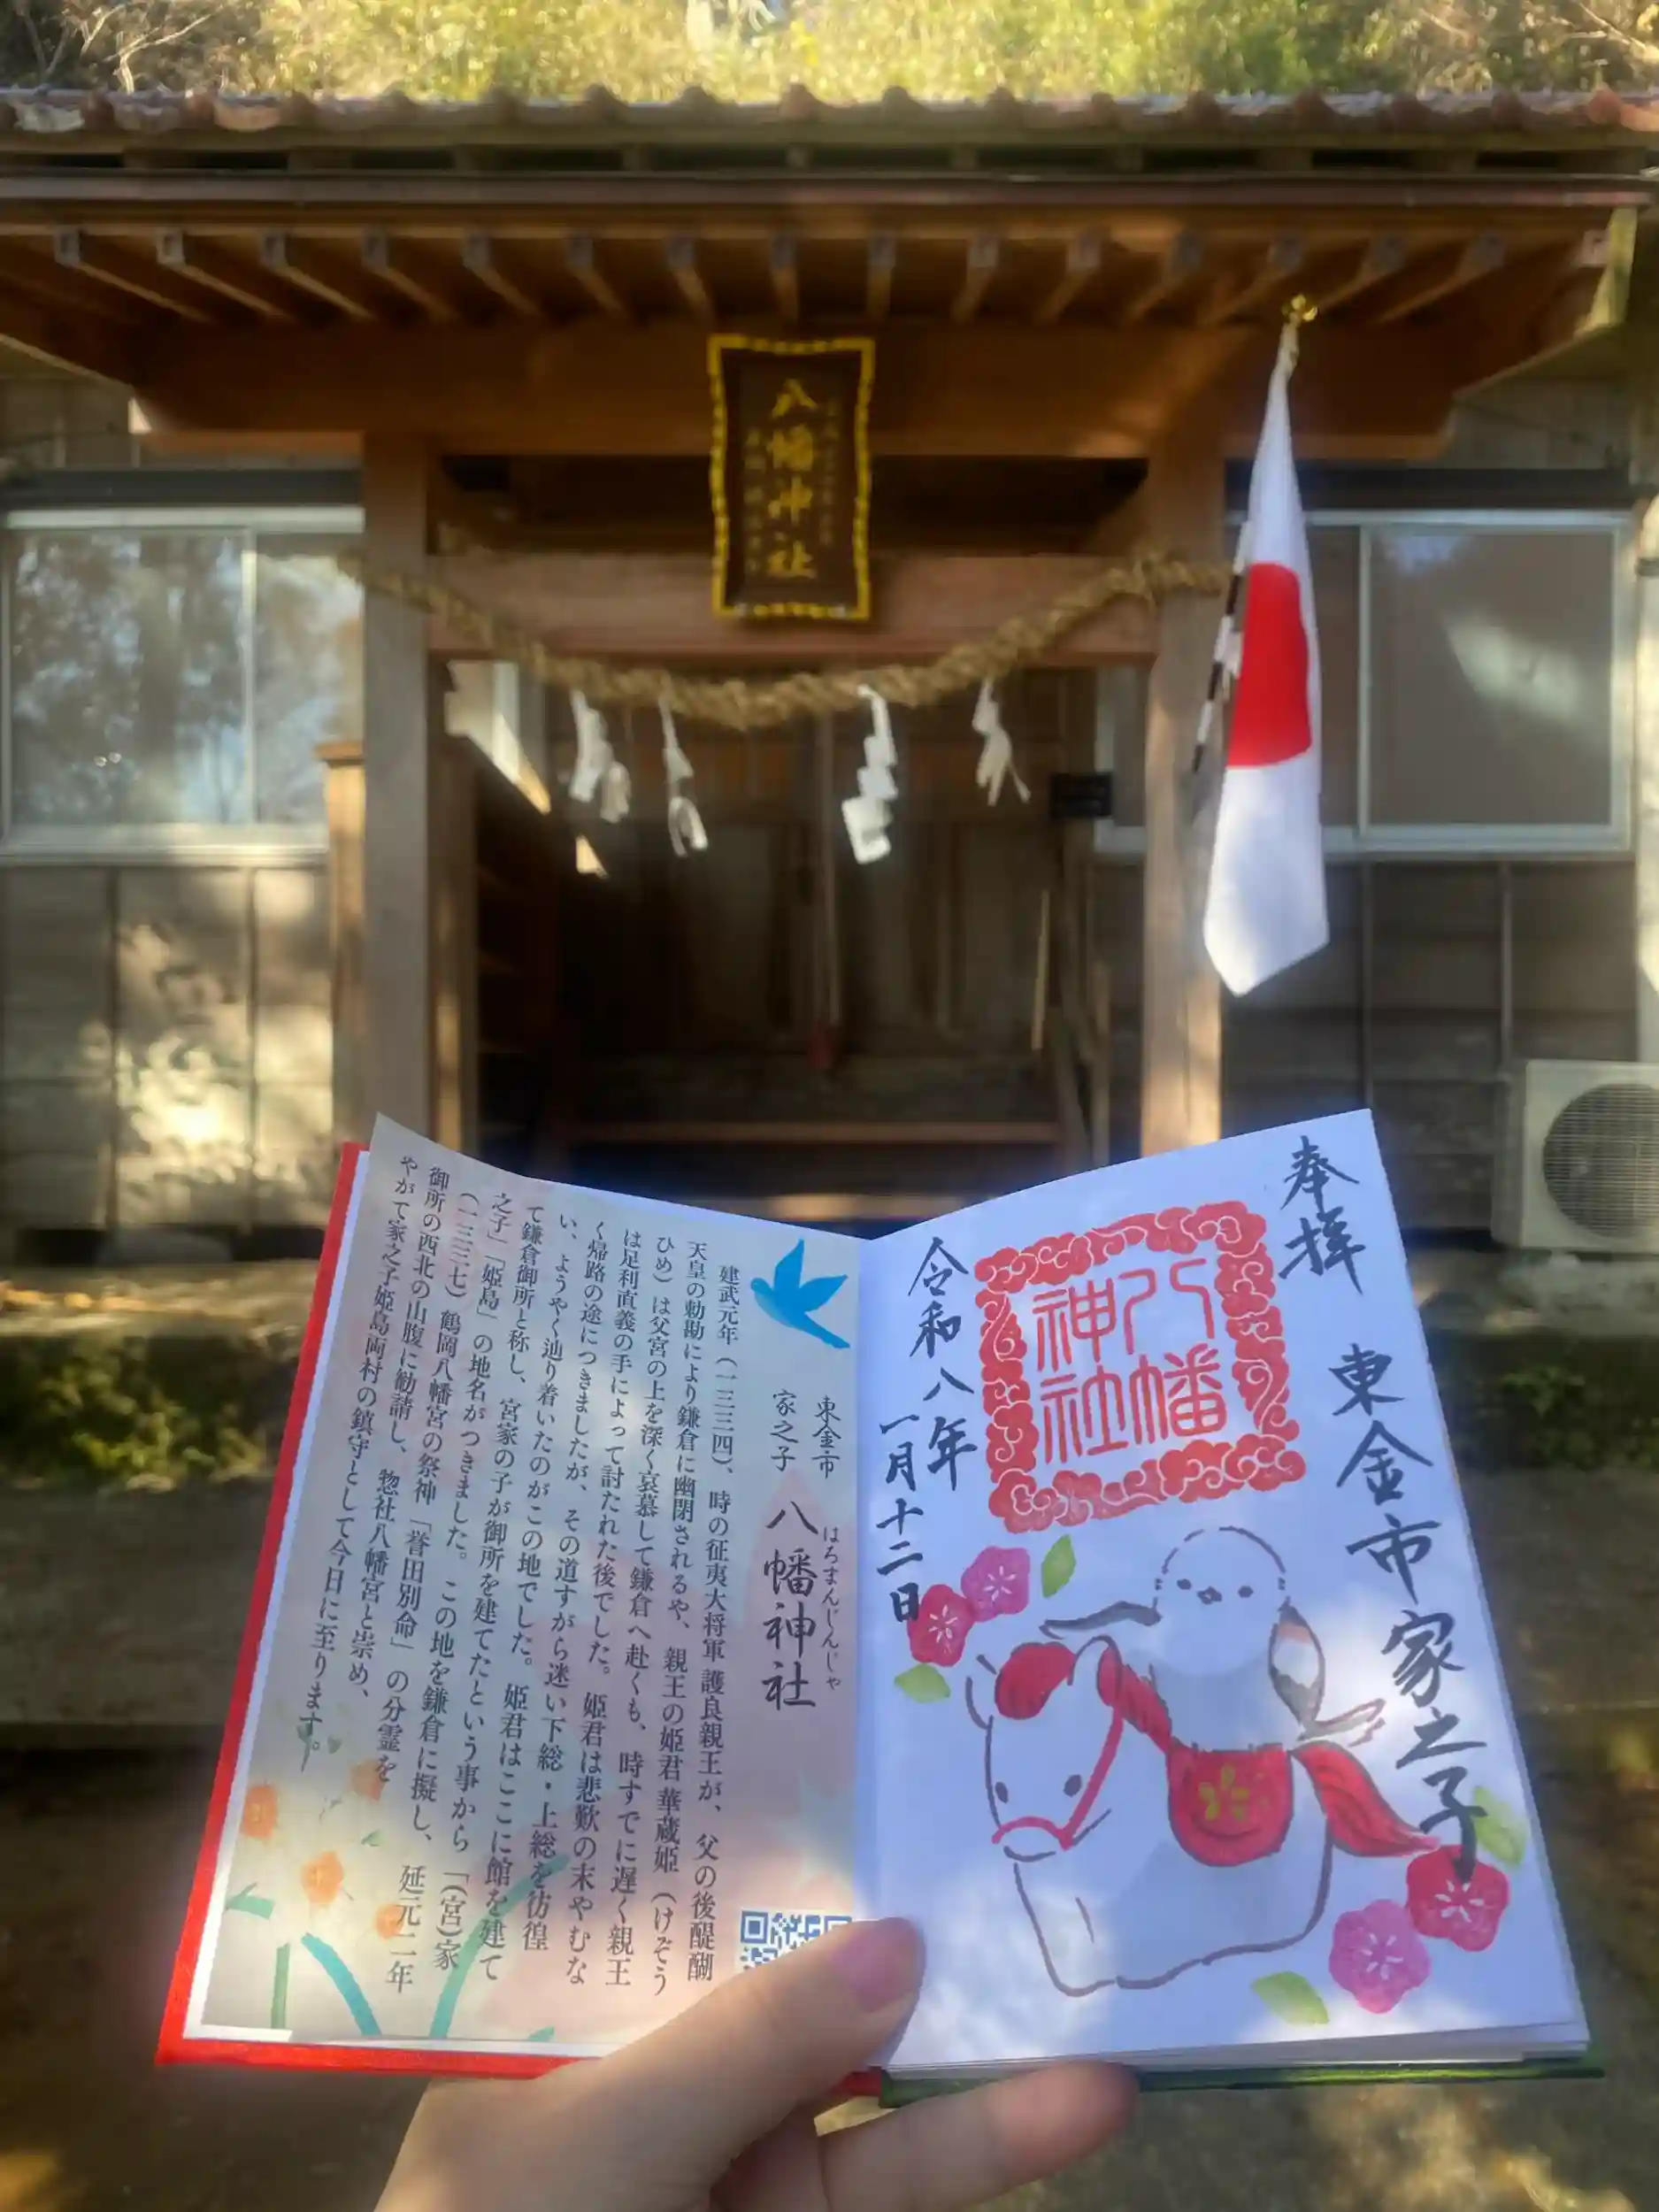 八幡神社
奉拝
東金市家之子
八幡
神社
令和八年
一月十二日
東金市
家之子
はちまんじんじゃ
八幡神社
建武元年(一三三四)、時の征夷大将軍 護良親王が、父の後醍醐
天皇の勅勘により鎌倉に幽閉されるや、親王の姫君 華蔵姫(けぞう
ひめ)は父宮の上を深く哀慕して鎌倉へ赴くも、時すでに遅く親王
は足利直義の手によって討たれた後でした。姫君は悲歎の末やむな
く帰路の途につきましたが、その道すがら迷い下総・上総を彷徨
い、ようやく辿り着いたのがこの地でした。姫君はここに館を建て
て鎌倉御所と称し、宮家の子が御所を建てたという事から「(宮)家
之子」「姫島」の地名がつきました。この地を鎌倉に擬し、延元二年
(一三三七)鶴岡八幡宮の祭神「誉田別命」の分霊を
御所の西北の山腹に勧請し、惣社八幡宮と崇め、
やがて家之子姫島両村の鎮守として今日に至ります。